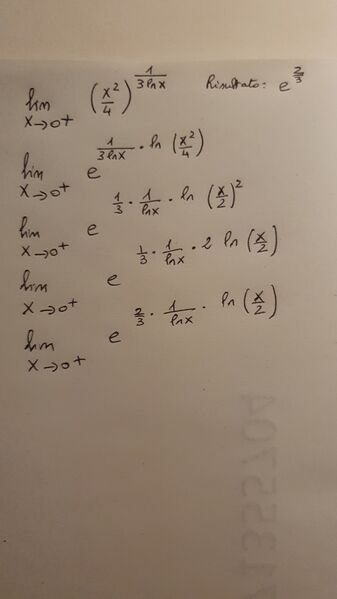 lim x→0⁺ (x²/4)^(1/(3 ln x)) Risultato: e^(2/3)
lim x→0⁺ e^(1/(3 ln x) · ln (x²/4))
lim x→0⁺ e^(1/3 · 1/(ln x) · ln (x/2)²)
lim x→0⁺ e^(1/3 · 1/(ln x) · 2 ln (x/2))
lim x→0⁺ e^(2/3 · 1/(ln x) · ln (x/2))
71355704